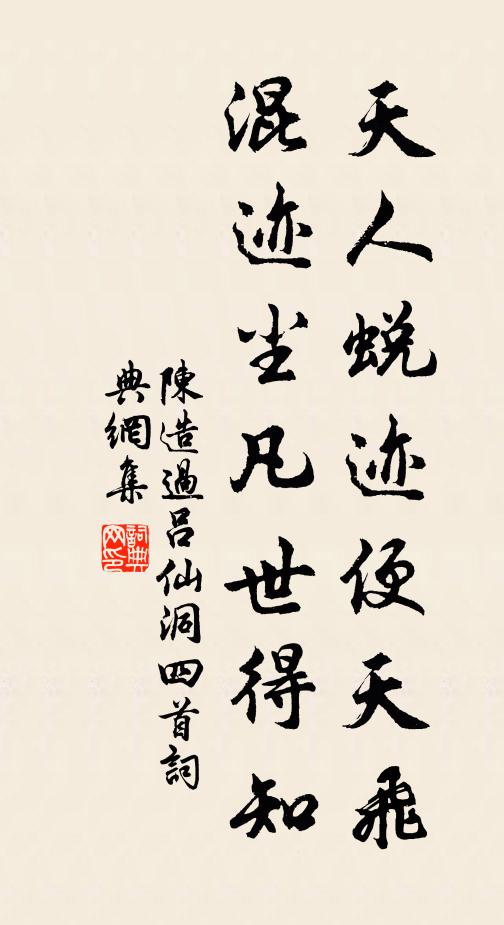 天人蜕迹便天飛
混迹尘凡世得知
陳造過呂仙洞四首詞
典網集
詞典网印